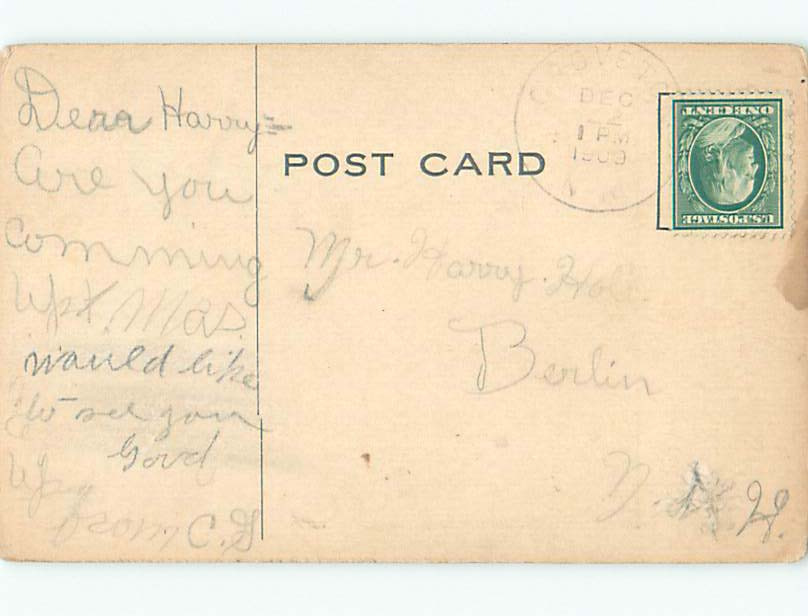 Dear Harry=
Are you
comming
up X. Mas.
would like
to see you
Good
from C.G
POST CARD
DEC
1 PM
1909
ONE CENT
U.S. POSTAGE
Mr. Harry
Berlin
N. H.